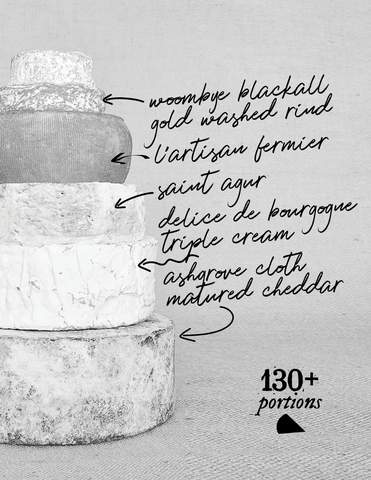 woombye blackall
gold washed rind
l'artisan fermier
saint agur
delice de bourgogne
triple cream
ashgrove cloth
matured cheddar
130+
portions